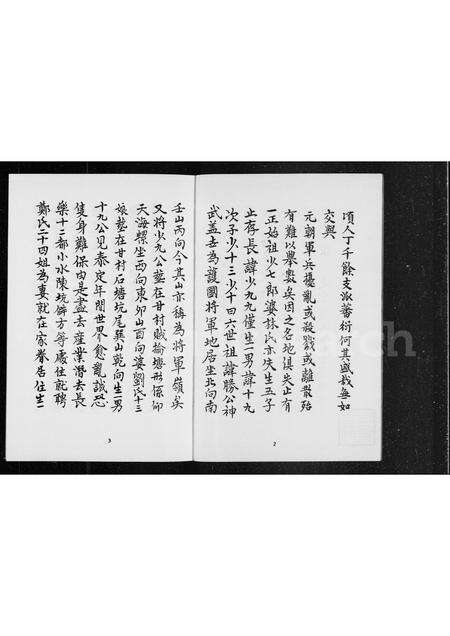 項人丁千餘支派蕃衍何其盛哉無如
交興
元朝軍兵擾亂或殺戮或離散殆
有難以舉數矣因之各地俱失止有
一正始祖少七郎婆林氏亦失生五子
止存長諱少九九僅生一男諱十九
次子少十三少十四六世祖諱勝公神
武蓋古為護國將軍地居坐北向南
2
壬山丙向今其山亦稱為將軍嶺矣
又將少九公塟在甘村賊輪塘形係仰
天海螺坐西向東卯山酉向婆劉氏十三
娘塟在甘村石塘坑尾巽山乾向生一男
十九公見泰定年間世界愈亂誠恐
隻身難保由是盡去產業潛去長
樂十二都小水陂坑僻方等處住就聘
鄭氏二十四姐為妻就在家眷居住生一
3
arch